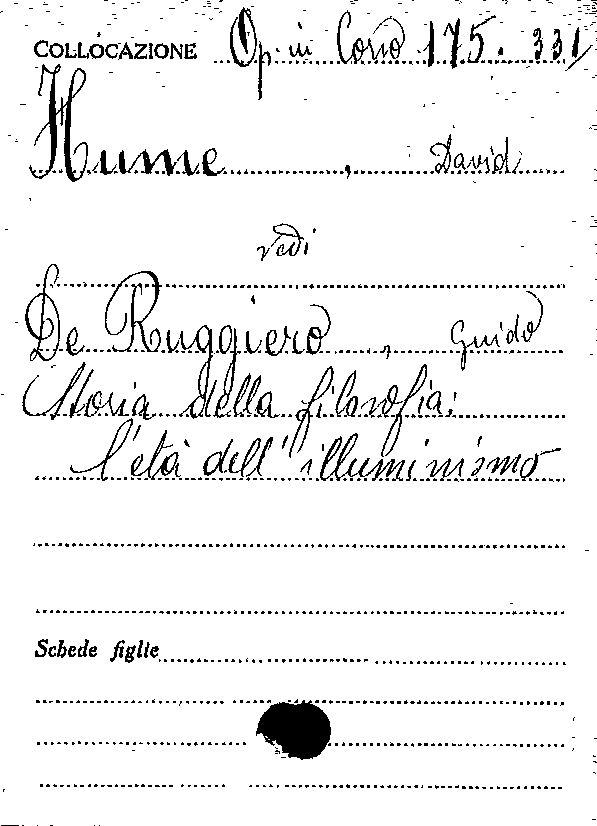 COLLOCAZIONE Op. in Corso 175. 331
Hume, David
vedi
De Ruggiero, Guido
Storia della filosofia:
l'età dell'illuminismo
Schede figlie